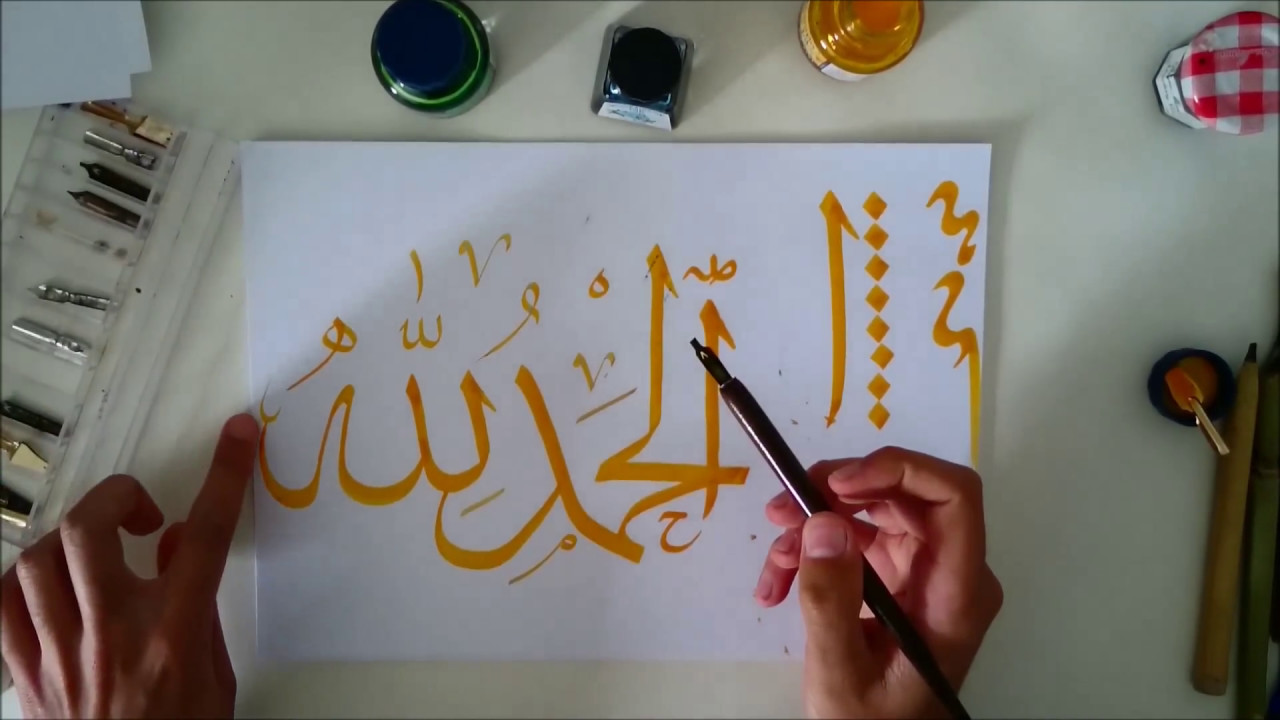 الحمد لله
ا